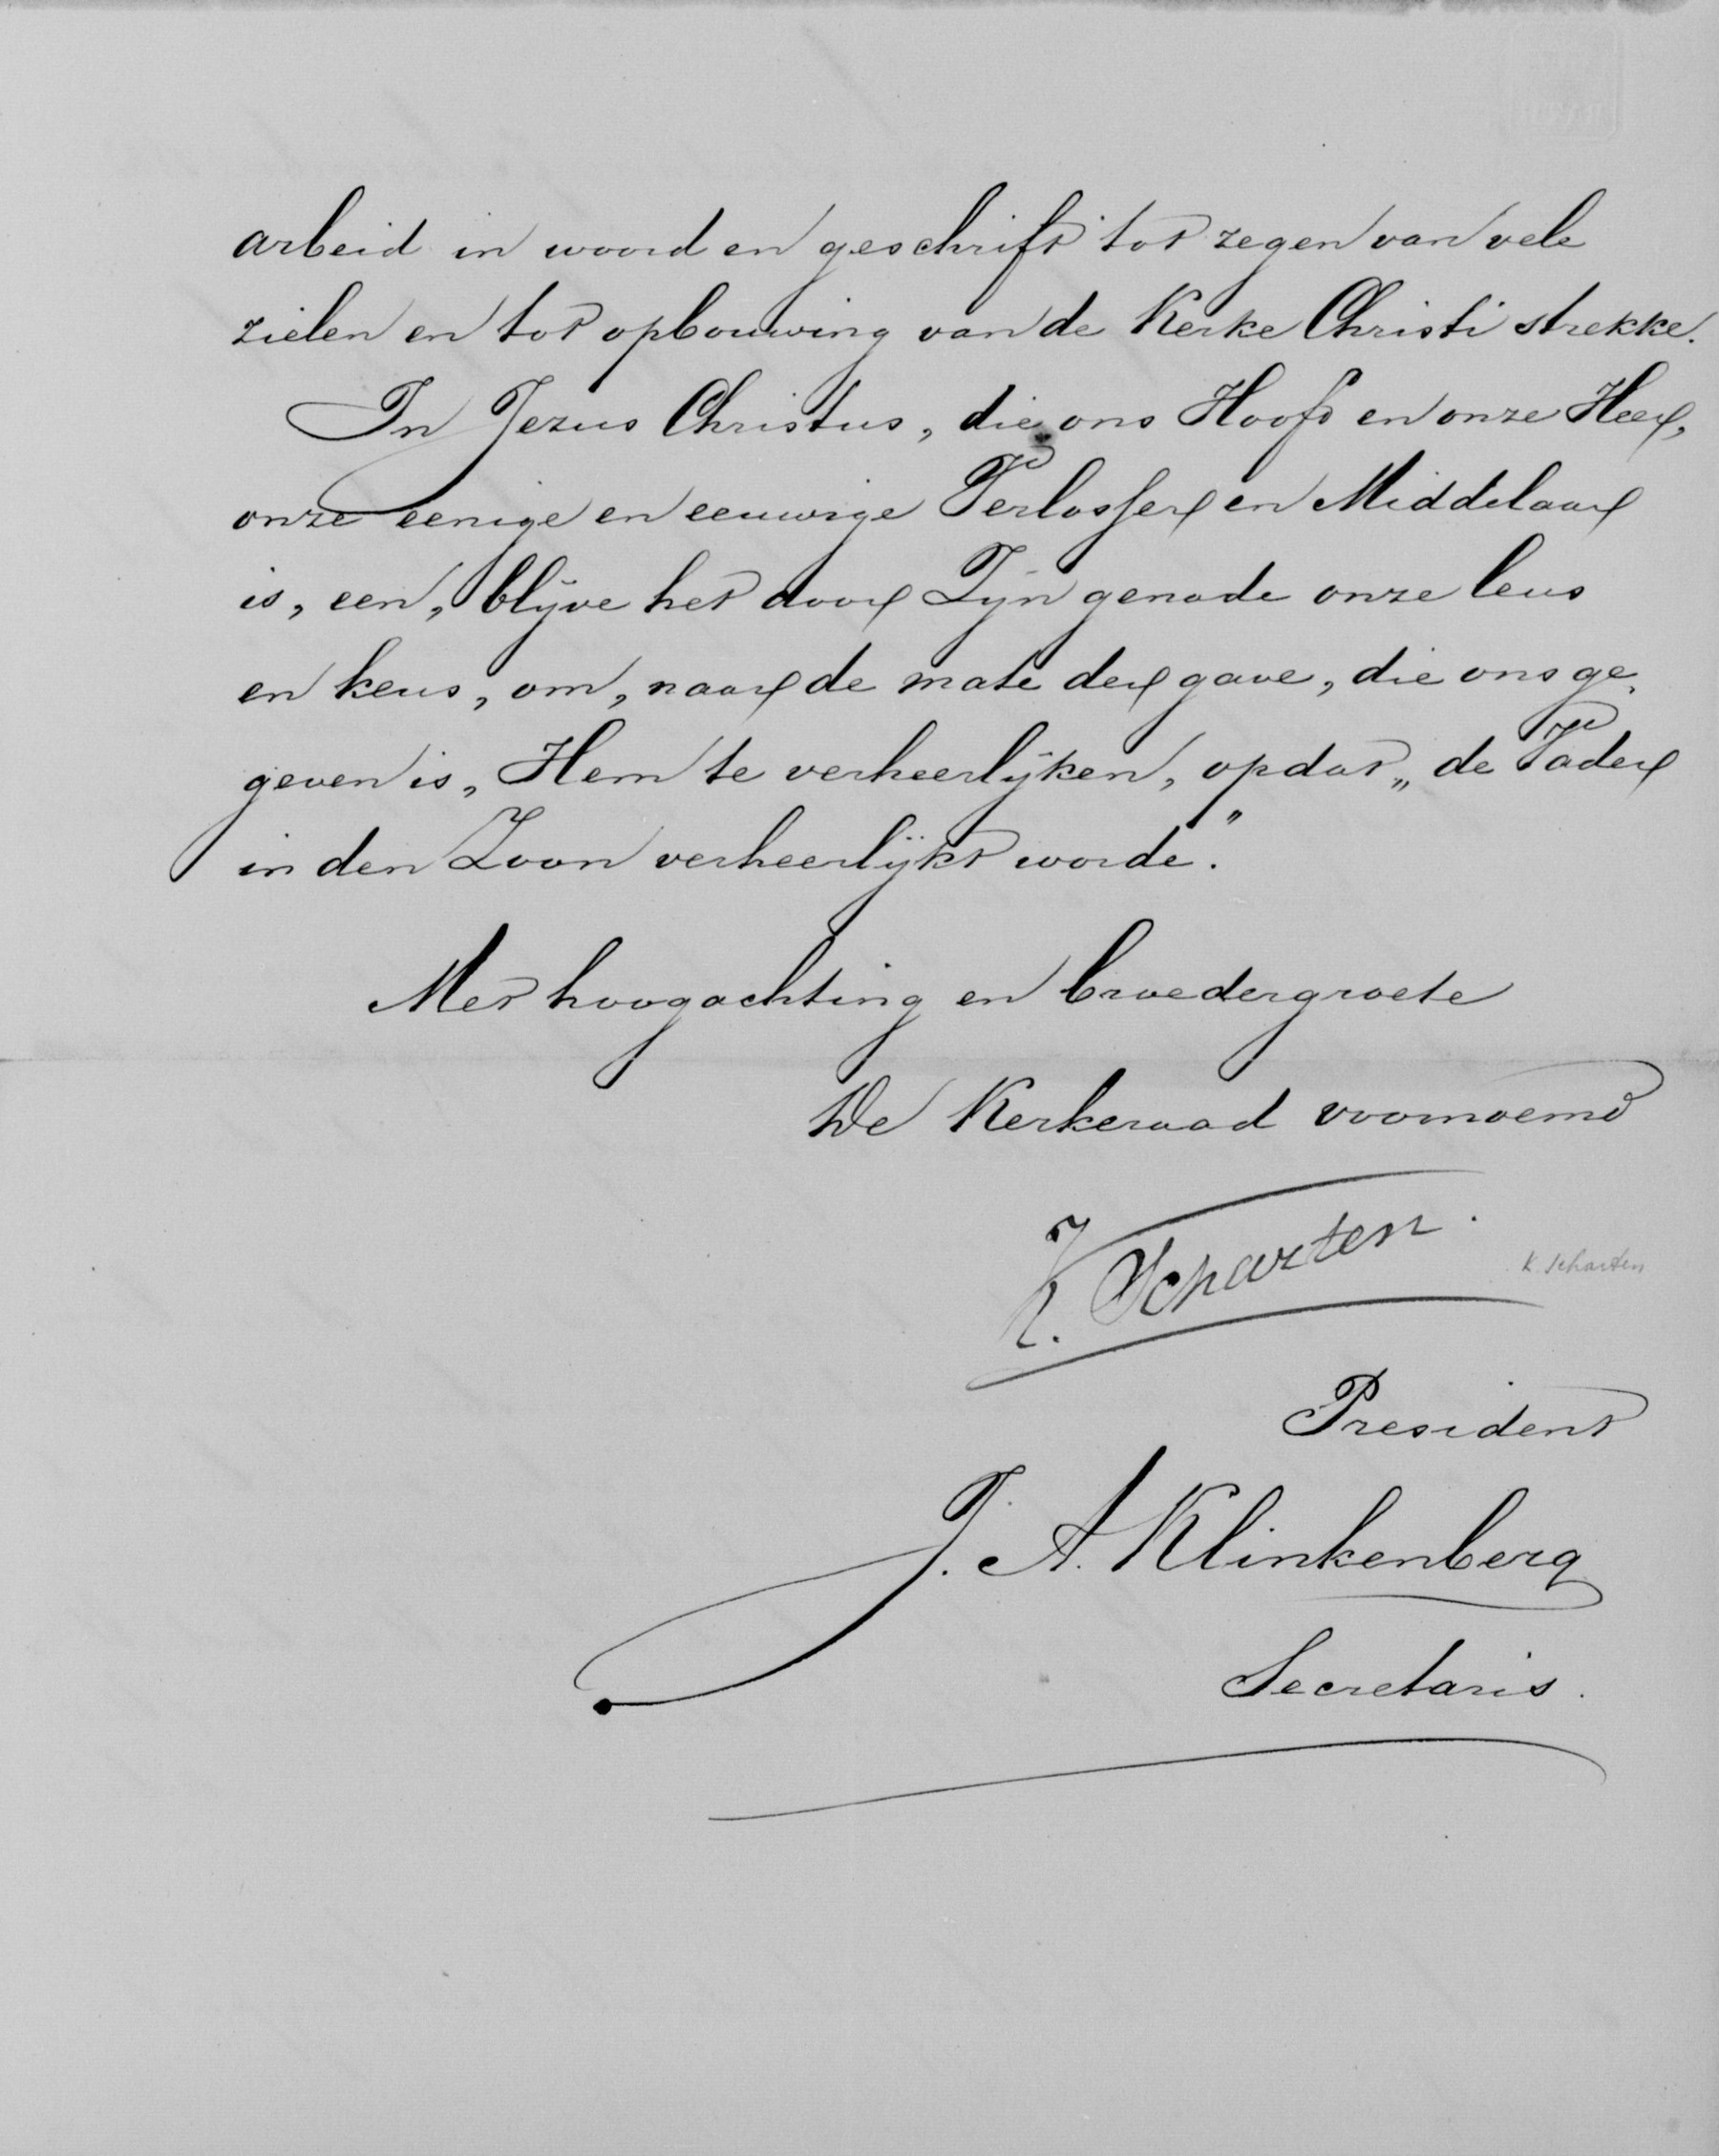 arbeid in woord en geschrift tot zegen van vele
zielen en tot opbouwing van de Kerke Christi strekke.
In Jezus Christus, die ons Hoofd en onze Heer,
onze eenige en eeuwige Verlosser en Middelaar
is, een, blijve het door Zijn genade onze leus
en keus, om, naar de mate der gave, die ons ge-
geven is, Hem te verheerlijken, opdat „de Vader
in den Zoon verheerlijkt worde."
Met hoogachting en broedergroete
De Kerkeraad voornoemd
K. Scharten.
K. Scharten
President
J. A. Klinkenberg
Secretaris.